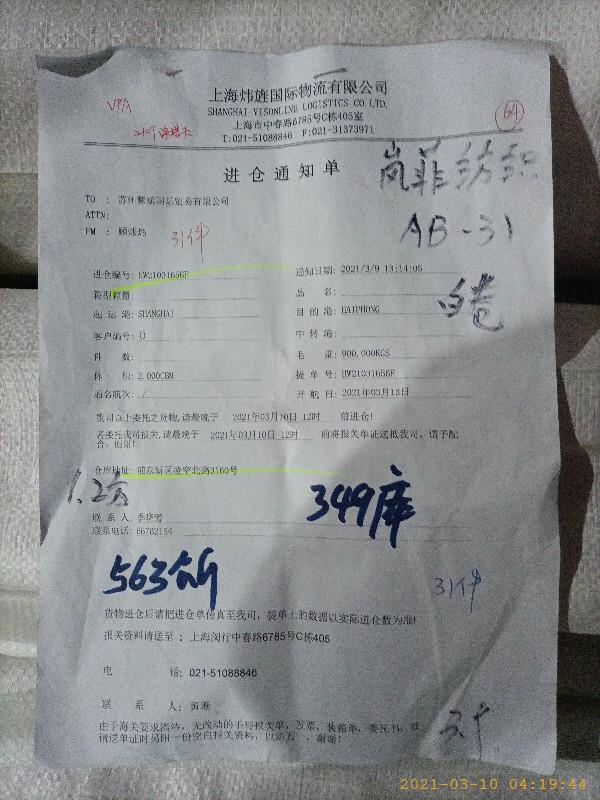 上海炜旌国际物流有限公司
SHANGHAI VISONLINE LOGISTICS CO.LTD.
上海市中春路6785号C栋405室
T:021-51088846 F:021-31373971
VPA
64
进仓通知单
岚菲纺织
AB-31
TO : 苏州 国际贸易有限公司
ATTN:
FM : 顾
31件
白卷
进仓编号: HW21031656F
通知日期: 2021/3/9 13:14:05
箱型箱量:
品 名:
起运港: SHANGHAI
目的港: HAIPHONG
客户编号: ()
中转港:
件 数:
毛 重: 900.000KGS
体 积: 2.000CBM
提单号: HW21031656F
船名航次: /
开航日: 2021年03月13日
贵司以上委托之货物,请最晚于 2021年03月10日 12时 前进仓!
若委托我司报关,请最晚于 2021年03月10日 12时 前将报关单证送抵我司, 请予配
合, 谢谢!
仓库地址: 浦东新区凌空北路3160号
1.2方
349库
联系人: 季晓芳
联系电话: 66782154
563公斤
31件
货物进仓后请把进仓单传真至我司, 提单上的数据以实际进仓数为准!
报关资料请送至 : 上海闵行中春路6785号C栋405
电 话: 021-51088846
联 系 人: 黄
由于海关要求 , 无改动的手写报关单, 发票, 装箱单, 委托书, 故
请送单证时另附一份空白报关资料, 以防万一, 谢谢!
2021-03-10 04:19:44